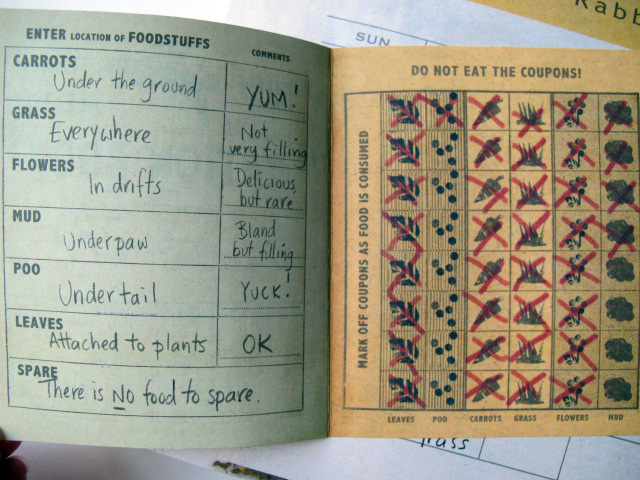 ENTER LOCATION OF FOODSTUFFS
COMMENTS
CARROTS
Under the ground
YUM!
GRASS
Everywhere
Not
very filling
FLOWERS
In drifts
Delicious,
but rare
MUD
Underpaw
Bland
but filling
POO
Undertail
YUCK!
LEAVES
Attached to plants
OK
SPARE
There is No food to spare.
SUN
Rabb
DO NOT EAT THE COUPONS!
MARK OFF COUPONS AS FOOD IS CONSUMED
LEAVES POO CARROTS GRASS FLOWERS MUD